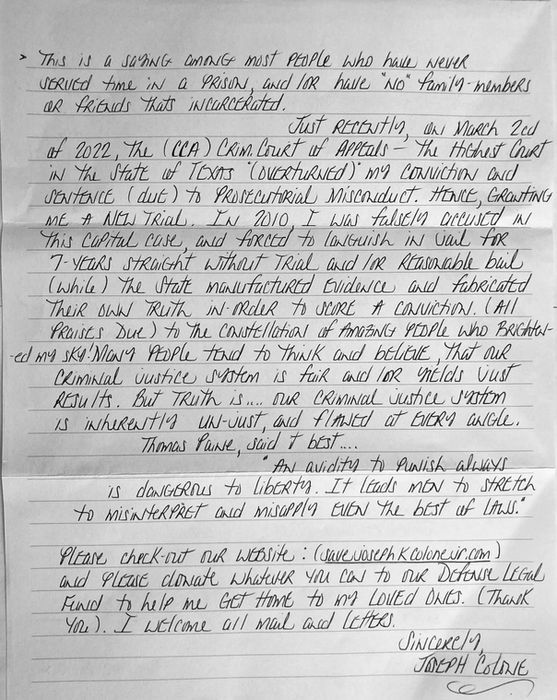 > This is a saying among most people who have never
served time in a prison, and/or have "NO" family-members
or friends thats incarcerated.
Just recently, on March 2cd
of 2022, the (CCA) Crim. Court of Appeals – the Highest Court
in the State of Texas "(overturned)" my conviction and
sentence (due) to Prosecutorial Misconduct. Hence, granting
me a new trial. In 2010, I was falsely accused in
this capital case, and forced to languish in jail for
7-years straight without trial and/or reasonable bail
(while) the State manufactured evidence and fabricated
their own truth in-order to score a conviction. (All
Praises Due) to the constellation of amazing people who brighten-
-ed my sky! Many people tend to think and believe, that our
criminal justice system is fair and/or yields just
results. But truth is.... our criminal justice system
is inherently un-just, and flawed at every angle.
Thomas Paine, said it best....
"An avidity to punish always
is dangerous to liberty. It leads men to stretch
to misinterpret and misapply even the best of laws."
Please check-out our website: (savejosephkcolonejr.com)
and please donate whatever you can to our Defense Legal
Fund to help me get home to my loved ones. (Thank
you). I welcome all mail and letters.
Sincerely,
Joseph Colone